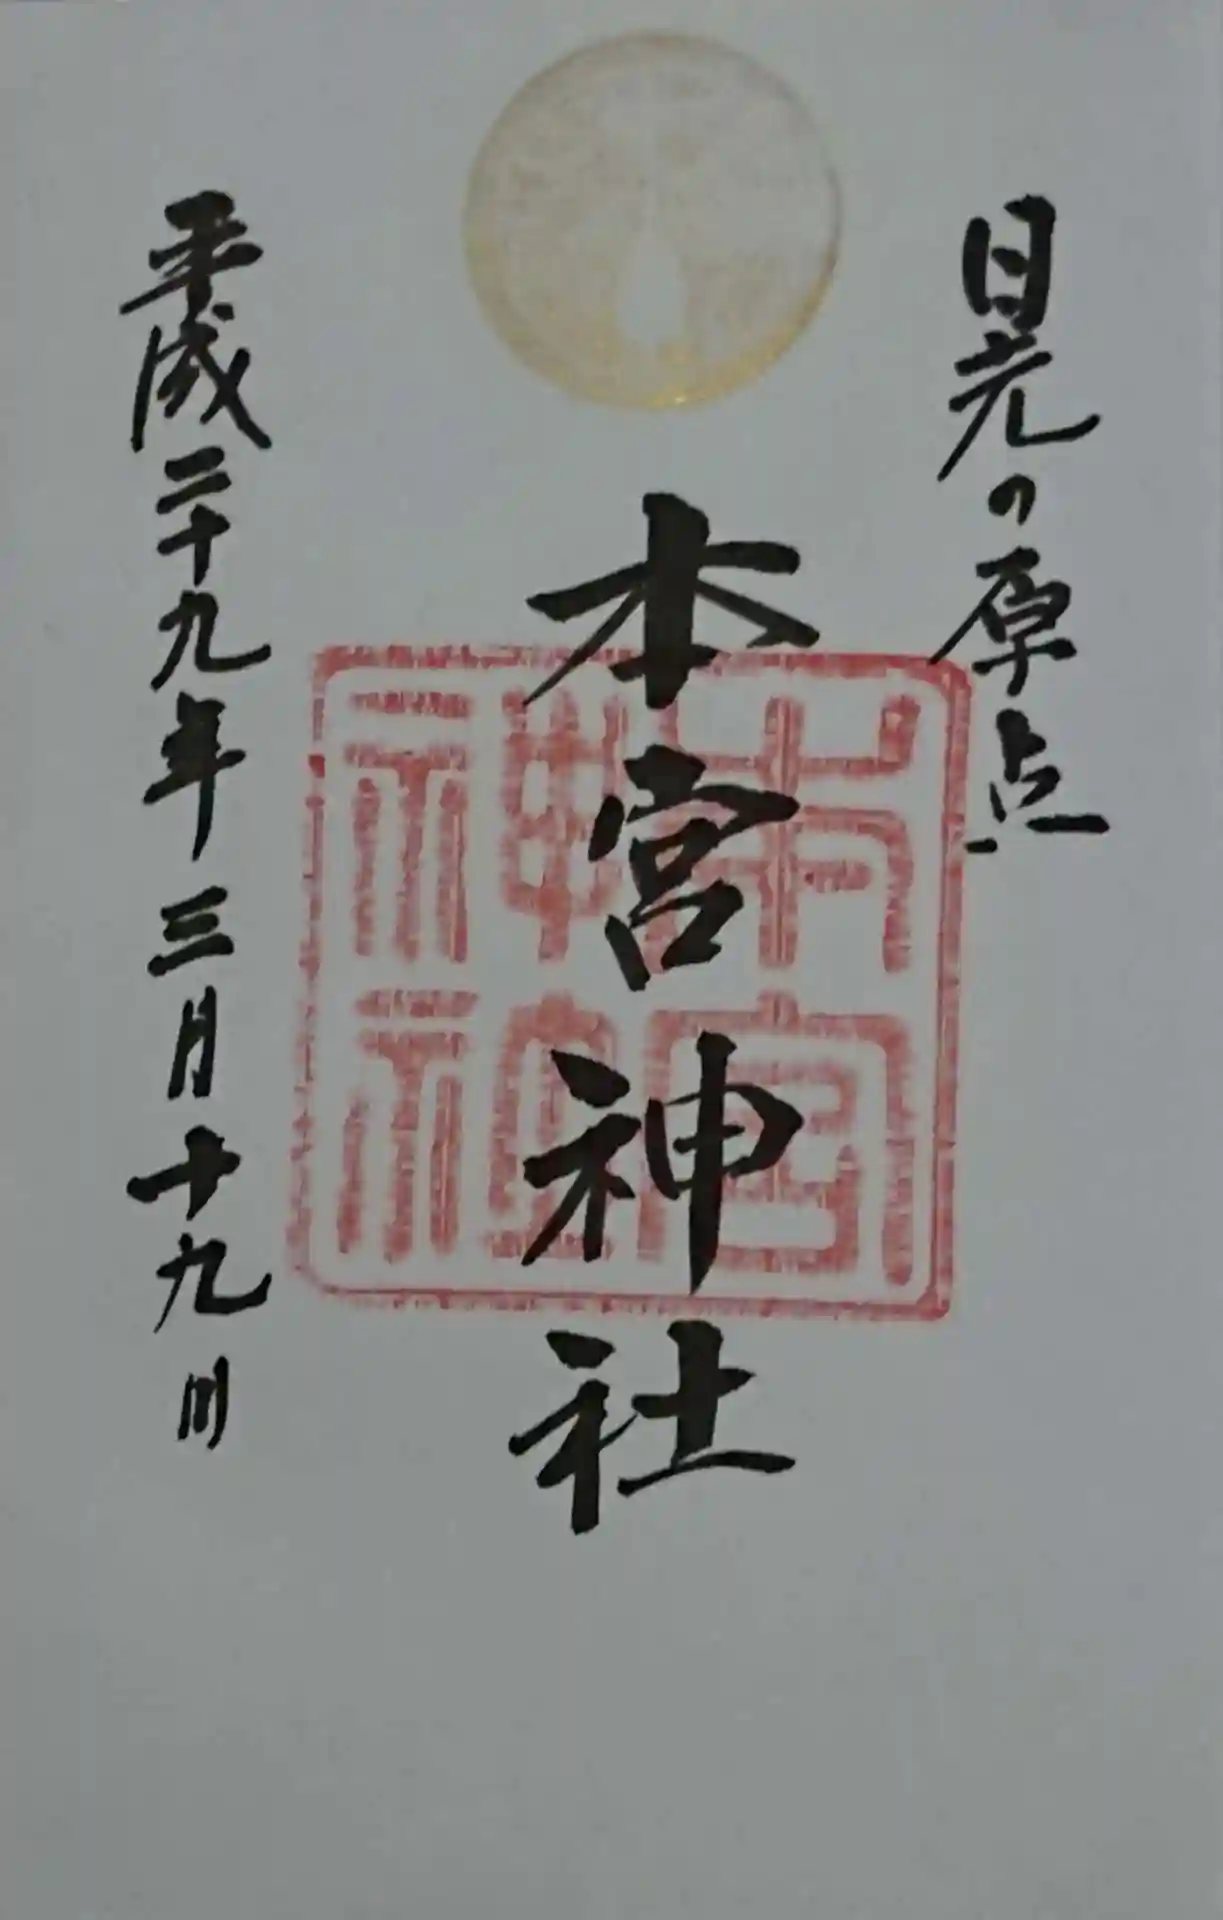 日光の原点
本宮神社
平成二十九年三月十九日
本宮神社